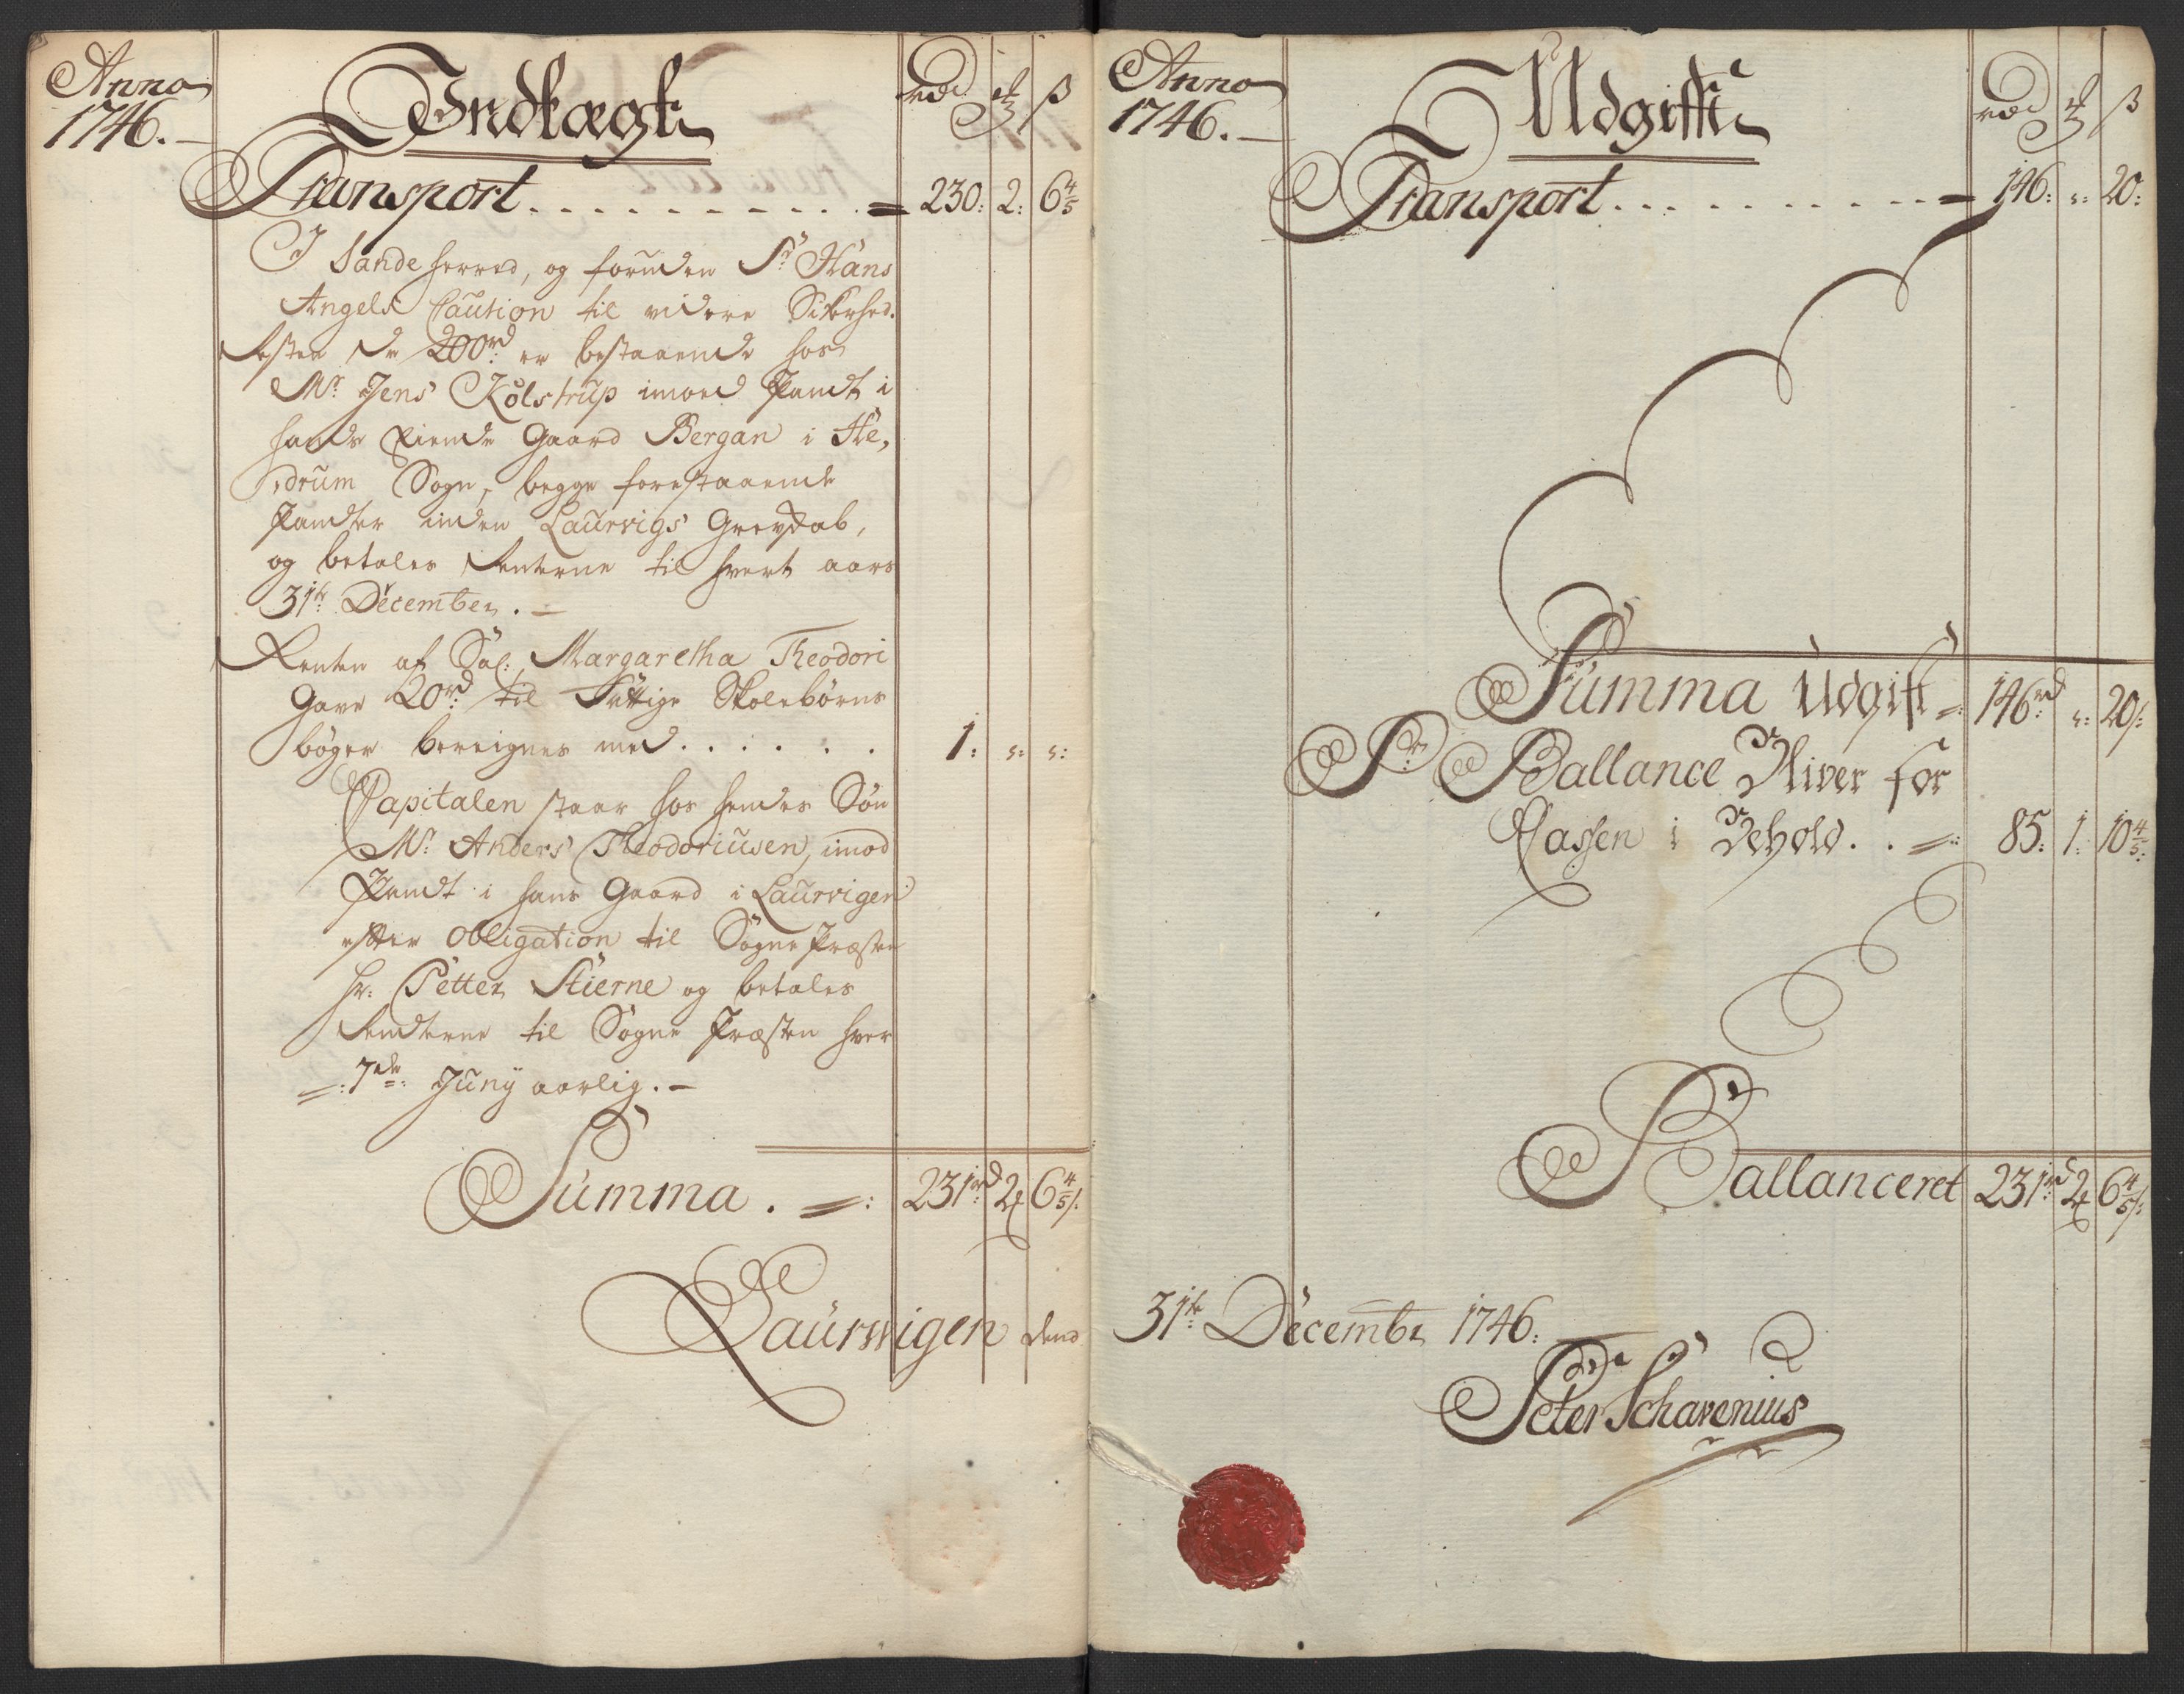 Anno
1746.
Indtægt
rd ₰ ß
Transport . . . . . . . . . . = 230: 2: 6 4/5
I Sande herred, og foruden Sr. Hans
Angels Caution til videre Sikerhed.
Resten de 200 rd. er bestaaende hos
Mr. Jens Kolstrup imod Pandt i
hands Eiende Gaard Bergan i He-
drum Sogn, begge forestaaende
Pandter inden Laurvigs Grevskab,
og betales Renterne til hvert aars
31te December. —
Renten af Sal: Margaretha Theodori
Gave 20 rd. til Fattige Skolebørns
bøger beregnes med . . . . . . 1: „: „:
Capitalen staar hos hendes Søn
Mr. Anders Theodoriusen, imod
Pandt i hans Gaard i Laurvigen
efter Obligation til Sogne Præsten
Hr: Petter Stierne og betales
Renterne til Sogne Præsten hver
7de Juny aarlig. —
Summa . =: 231 rd 2 6 4/5 ß.
Laurwigen dend
Anno
1746.
Udgifft
rd ₰ ß
Transport . . . . . . . . . . = 146: „: 20:
Summa Udgift =: 146 rd „: 20 ß:
Pr. Ballance bliver for
Cassen i Behold . . =: 85: 1: 10 4/5:
Ballanceret 231 rd 2 6 4/5 ß:
31te Decembr 1746.
Peter Schavenius